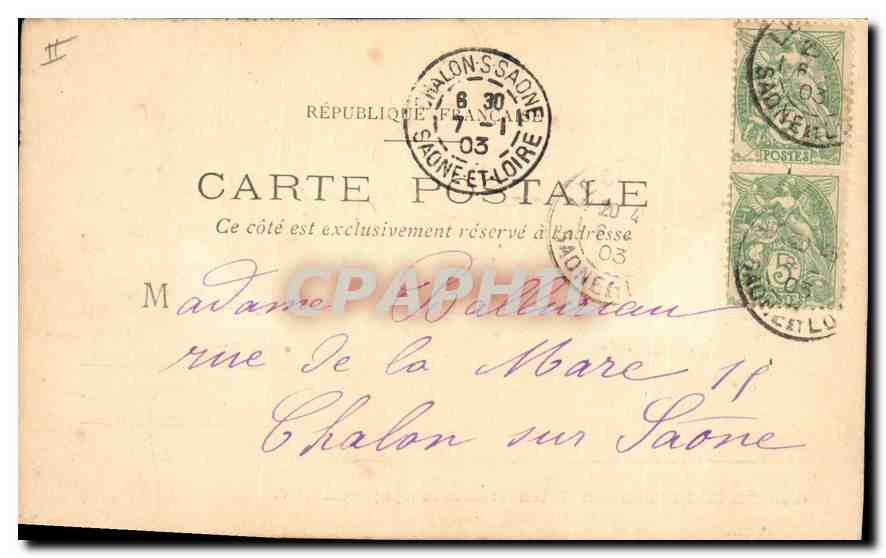 II
CHALON-S-SAONE
6 30
7 - 1
03
SAONE-ET-LOIRE
RÉPUBLIQUE FRANÇAISE
CARTE POSTALE
Ce côté est exclusivement réservé à l'adresse
20 4
03
SAONE
16
03
SAONE
POSTES
5
03
LO
CPAPHIL
Madame
rue de la Mare 15
Chalon sur Saône